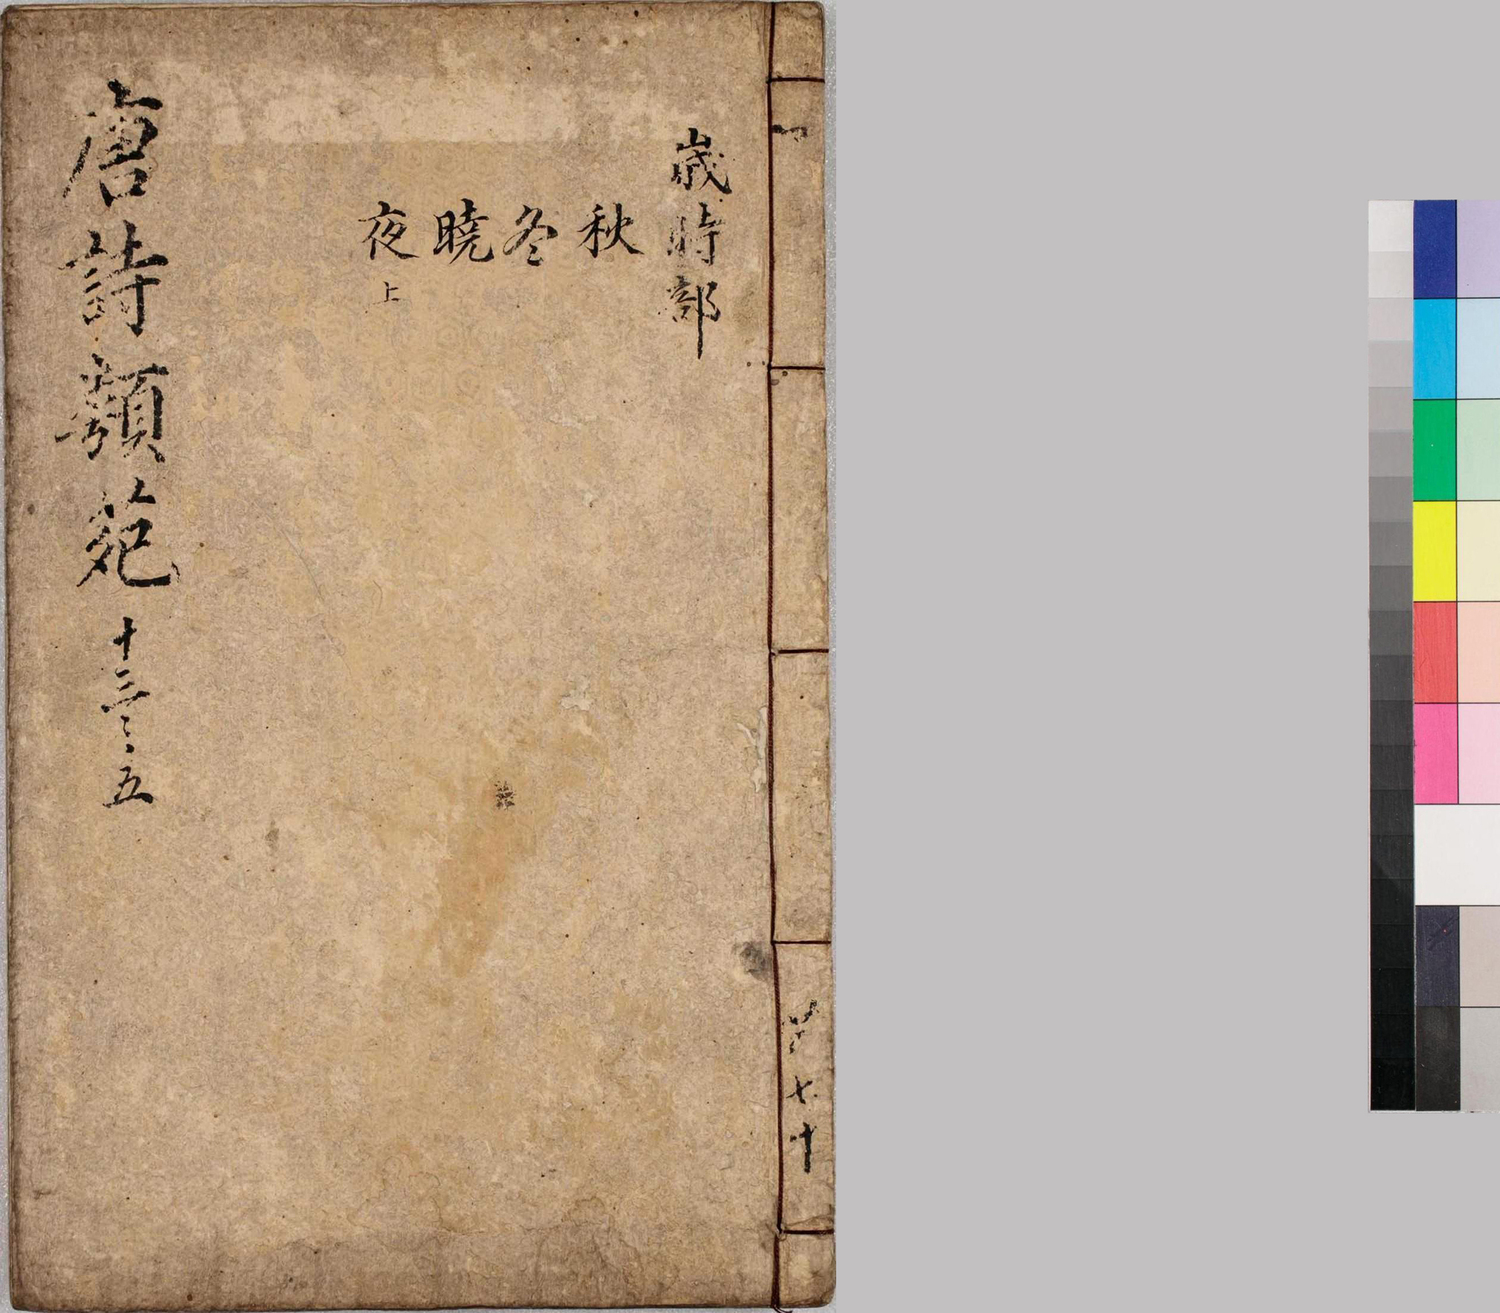 歳時部
秋
冬
曉
夜上
唐詩類苑 十三
五
七十